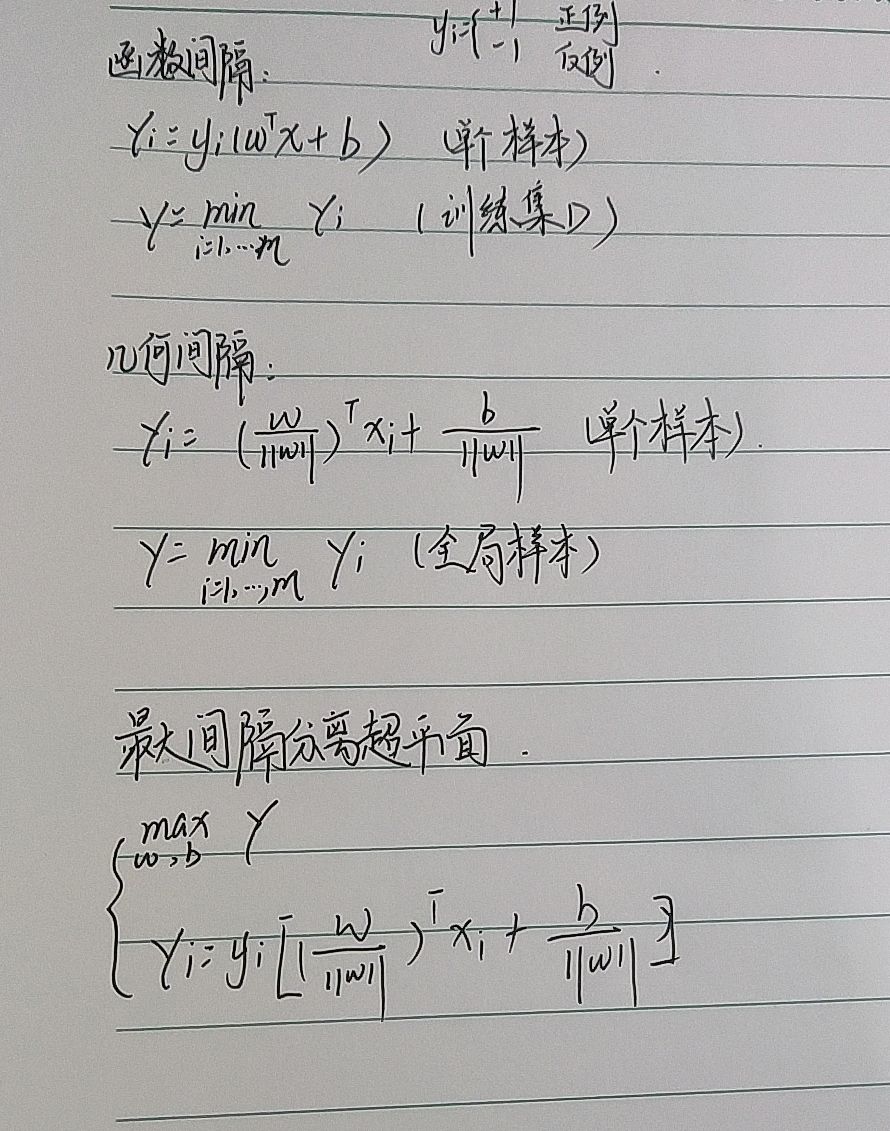 yi={+1 正例
-1 反例
函数间隔:
γi=yi(w^T x+b) (单个样本)
γ=min γi (训练集D)
i=1,…m
几何间隔:
γi=(w/||w||)^T xi+ b/||w|| (单个样本).
γ=min γi (全局样本)
i=1,…,m
最大间隔分离超平面.
{max γ
w,b
γi=yi[(w/||w||)^T xi+ b/||w||]